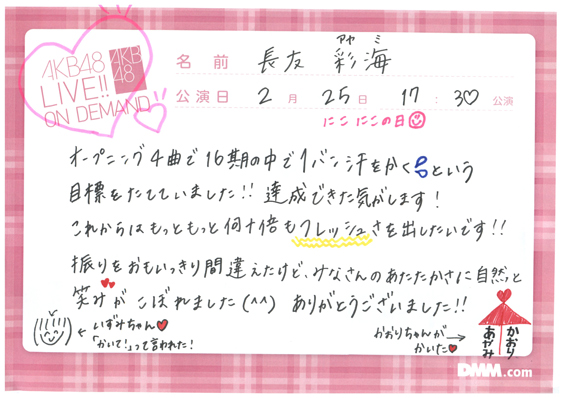 AKB48
LIVE!!
ON DEMAND
AKB
48
名前 長友 彩海
アヤ ミ
公演日 2月 25日 17:30 公演
にこにこの日
オープニング4曲で16期の中で1バン汗をかくという
目標をたてていました!! 達成できた気がします!
これからはもっともっと何十倍もフレッシュさを出したいです!!
振りをおもいっきり間違えたけど、みなさんのあたたかさに自然と
笑みがこぼれました(^^) ありがとうございました!!
←いずみちゃん♥
「かいて!」って言われた!
かおりちゃんが→
かいた♥
かおり
あやみ
DMM.com